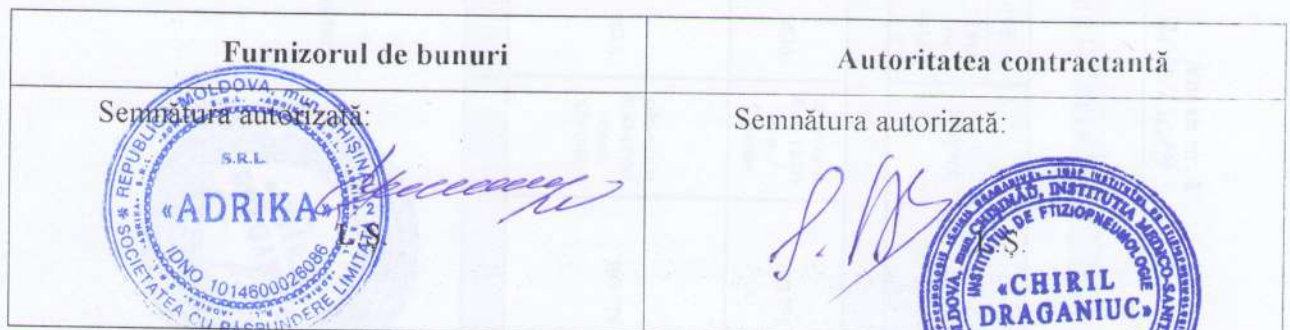 Furnizorul de bunuri
Autoritatea contractantă
Semnătura autorizată:
Semnătura autorizată:
REPUBLICA MOLDOVA, mun. CHIȘINĂU
S.R.L.
«ADRIKA»
IDNO 1014600026086
SOCIETATEA CU RĂSPUNDERE LIMITATĂ
L.Ș.
INSTITUȚIA MEDICO-SANIT
INSTITUTUL DE FTIZIOPNEUMOLOGIE
L.Ș.
«CHIRIL
DRAGANIUC»